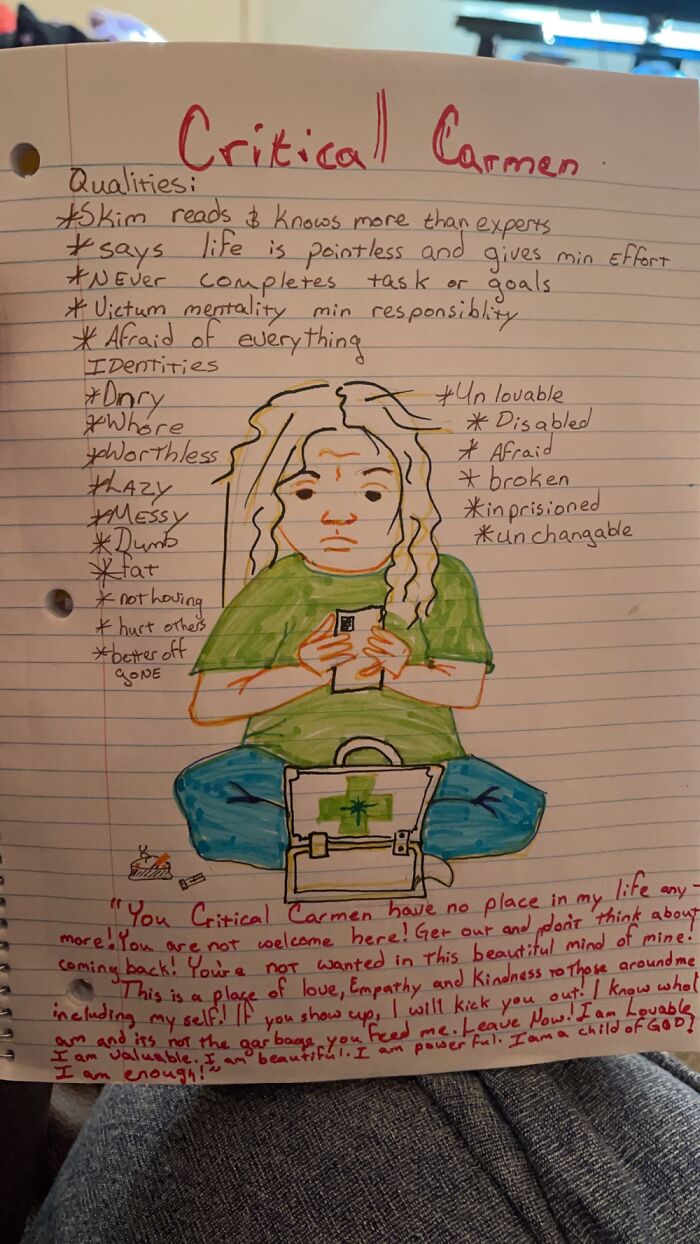 Critical Carmen
Qualities:
*Skim reads & knows more than experts
*says life is pointless and gives min EFFORT
*NEver completes task or goals
*Victum mentality min responsiblity
*Afraid of everything
IDentities
*Whore
*Worthless
*LAZY
*MESSY
*Dumb
*fat
*not having
*hurt others
*better off
gONE
*Un lovable
*Disabled
*Afraid
*broken
*inprisioned
*unchangable
"You Critical Carmen have no place in my life any-
more! You are not welcome here! Get out and don't think about
coming back! You're not wanted in this beautiful mind of mine.
This is a place of love, Empathy and Kindness to those around me
including my self! If you show up, I will kick you out! I know who I
am and its not the garbage you feed me. Leave Now! I am Lovable,
I am valuable. I am beautiful. I am powerful. I am a child of GOD!
I am enough!"